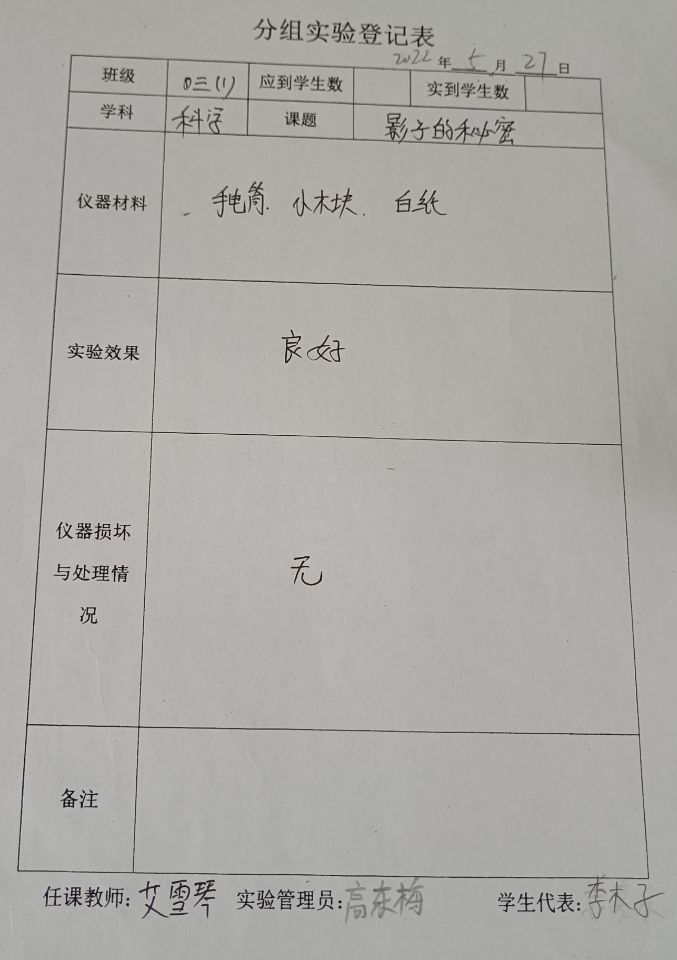 分组实验登记表
2022年 5 月 27 日
班级 03(1) 应到学生数 实到学生数
学科 科学 课题 影子的秘密
仪器材料 手电筒. 小木块. 白纸
实验效果 良好
仪器损坏
与处理情 无
况
备注
任课教师: 艾雪琴 实验管理员: 高东梅 学生代表: 李木子